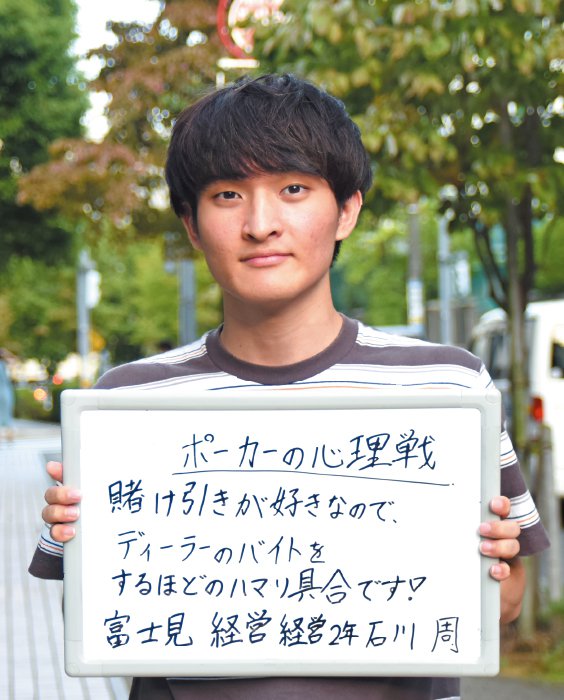 ポーカーの心理戦
賭け引きが好きなので、
ディーラーのバイトを
するほどのハマり具合です!
富士見 経営 経営2年 石川 周